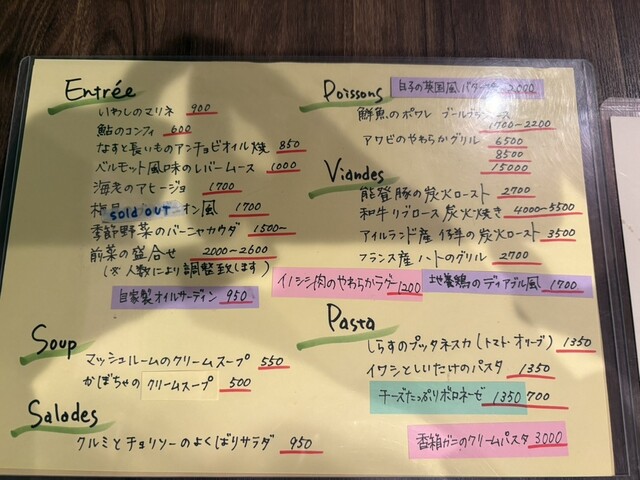 Entrée
いわしのマリネ 900
鮎のコンフィ 600
なすと長いものアンチョビオイル焼 850
ベルモット風味のレバームース 1000
海老のアヒージョ 1700
sold out オン風 1700
季節野菜のバーニャカウダ 1500~
前菜の盛合せ 2000~2600
(※人数により調整致します)
自家製オイルサーディン 950
Soup
マッシュルームのクリームスープ 550
かぼちゃのクリームスープ 500
Salades
クルミとチョリソーのよくばりサラダ 950
Poissons
白子の英国風バター
鮮魚のポワレ ブールブランソース
1700~2200
アワビのやわらかグリル 6500
8500
15000
Viandes
能登豚の炭火ロースト 2700
和牛リブロース炭火焼き 4000~5500
アイルランド産仔羊の炭火ロースト 3500
フランス産ハトのグリル 2700
イノシシ肉のやわらかラグー 1200
地養鶏のディアブル風 1700
Pasta
しらすのプッタネスカ(トマト・オリーブ) 1350
イワシとしいたけのパスタ 1350
チーズたっぷりボロネーゼ 1350 700
香箱ガニのクリームパスタ 3,000